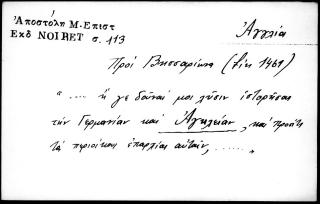 Ἀποστόλη Μ. Επιστ
Εκδ NOIRET σ. 113
Ἀγγλία
Πρὸς Βησσαρίωνα (fin 1461)
"..... ἤ γε δοῦναί μοι λύσιν ἱστορῆσαι
τὴν Γερμανίαν καὶ Ἀγγλείαν, καὶ
τὰ περιοίκους ἐπαρχίας αὐταῖν, .......